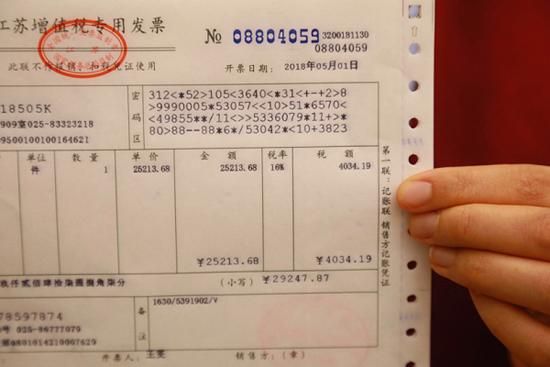 江苏增值税专用发票
№ 08804059 3200181130
08804059
此联不作报销、扣税凭证使用
开票日期：2018年05月01日
18505K
909室025-83323218
9500100100164621
密码区
312<*52>105<3640<*31<+-+2>8
>9990005*53057<<10>51*6570<
<49855**/11<>>5336079*11+>*
80>88--88*6*/53042*<10+3823
单位 数量 单价 金额 税率 税额
件 1 25213.68 25213.68 16% 4034.19
¥25213.68 ¥4034.19
玖仟贰佰肆拾柒圆捌角柒分 （小写） ¥29247.87
78597874
号 025-86777079
0801014210007629
备注
1630/5391902/V
开票人： 销售方：（章）
第一联：记账联 销售方记账凭证